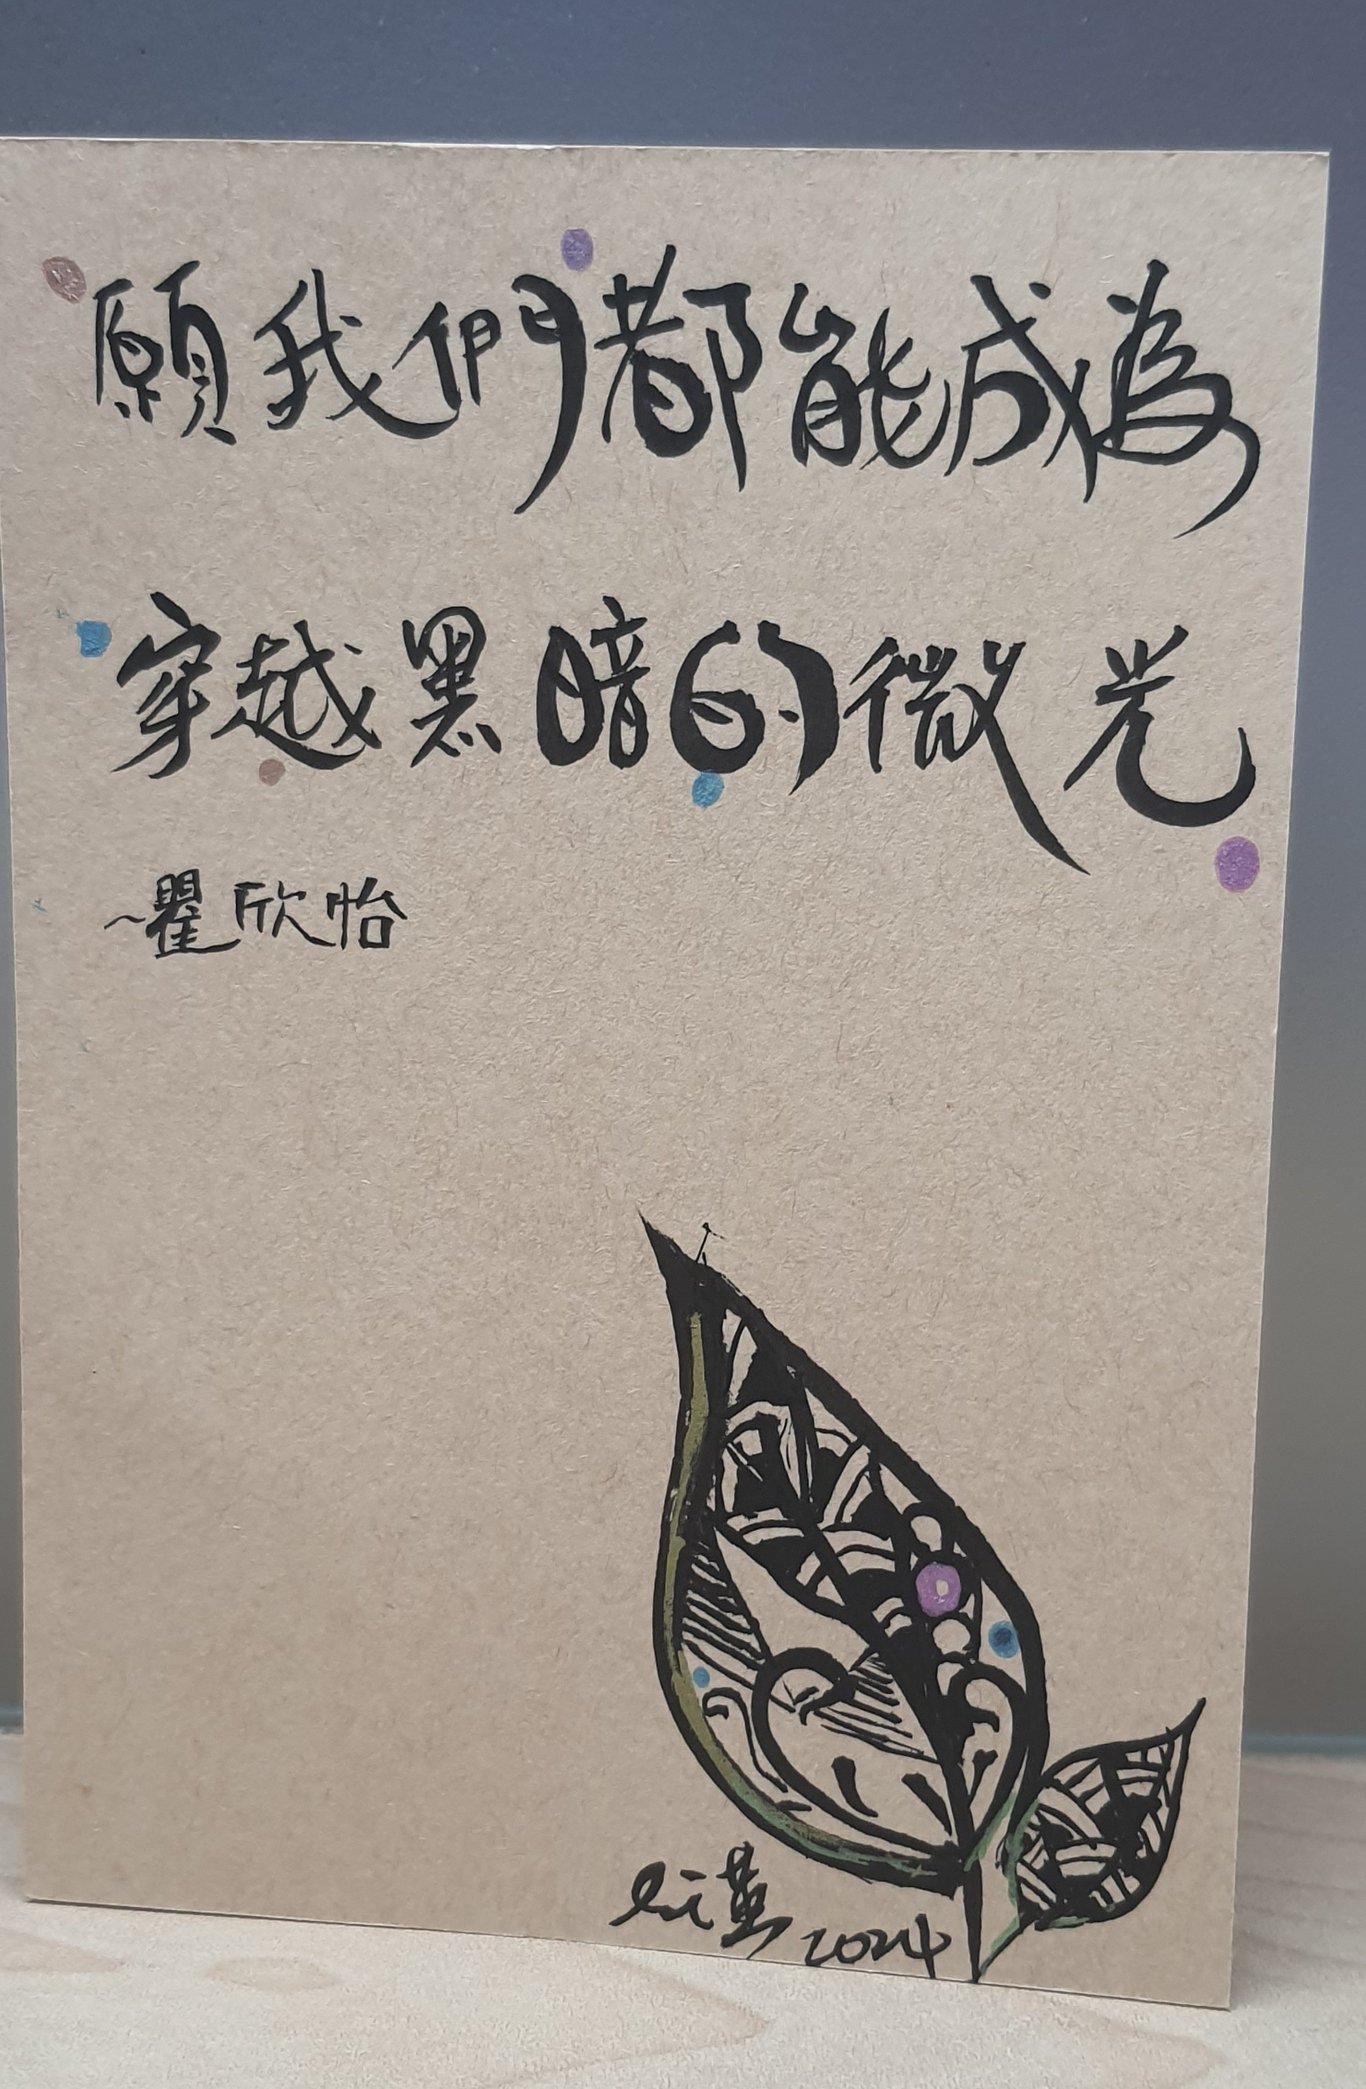 願我們都能成為
穿越黑暗的微光
~瞿欣怡
2024